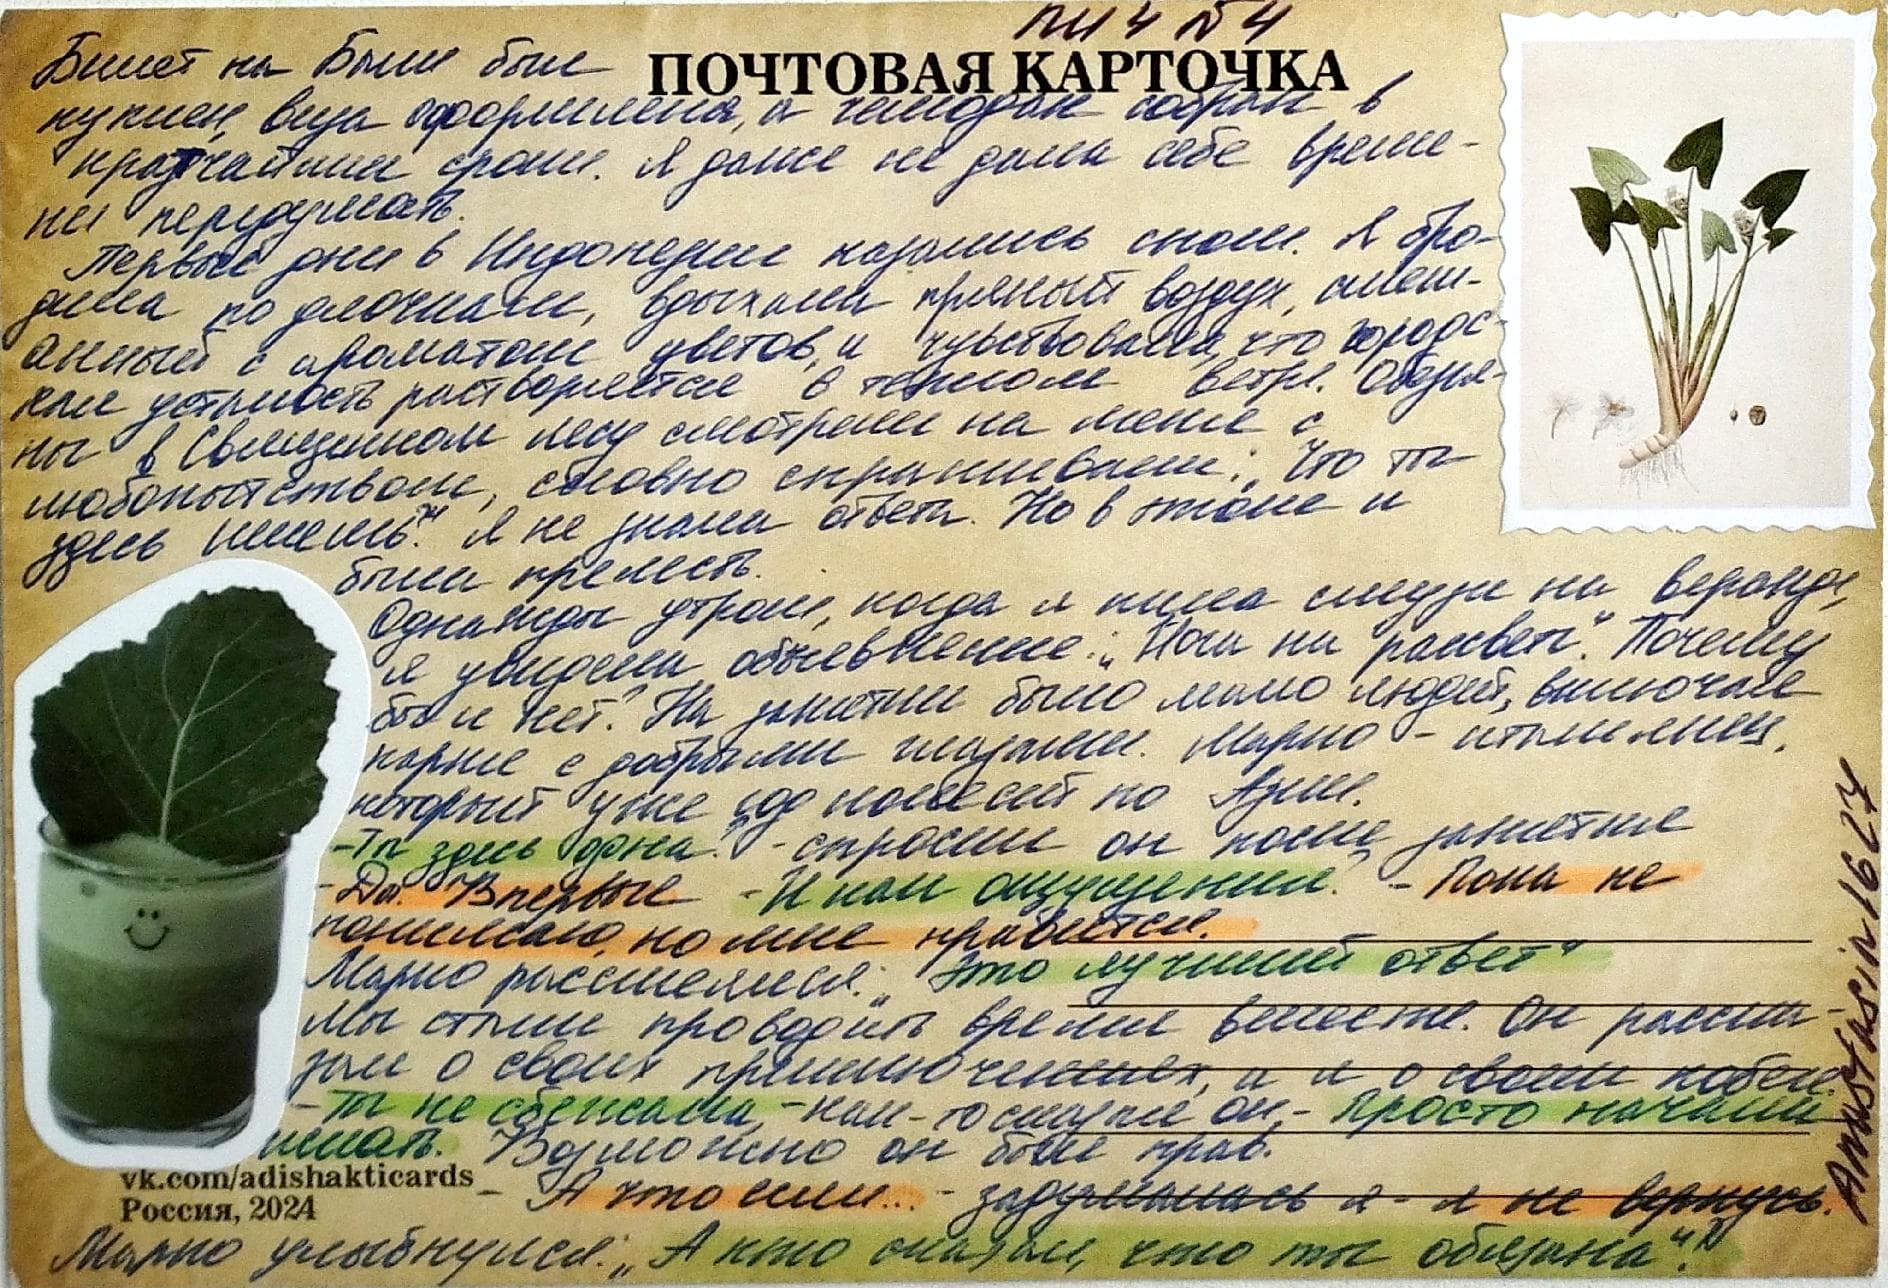 ПИ4 №4
ПОЧТОВАЯ КАРТОЧКА
Билет на Бали был
куплен, виза оформлена, а чемодан собран в
кратчайшии сроки. Я даже не дала себе време-
ни передумать.
Первые дни в Индонезии казались сном. Я бро-
дила по улочкам, вдыхала пряный воздух, смеш-
анный с ароматом цветов, и чувствовала, что городс-
кая усталость растворяется в теплом ветре. Обезья-
ны в Священном лесу смотрели на меня с
любопытством, словно спрашивали: „Что ты
здесь ищешь?" Я не знала ответа. Но в этом и
была прелесть.
Однажды утром, когда я пила смузи на веранде,
я увидела объявление: „Йога на рассвете". Почему
бы и нет? На занятии было мало людей, включая
парня с добрыми глазами. Марко - итальянец,
который уже год колесит по Азии.
-Ты здесь одна? - спросил он после занятия
- Да. Впервые -И как ощущения? - Пока не
понимаю, но мне нравится.
Марко рассмеялся: „Это лучший ответ"
Мы стали проводить время вместе. Он расска-
зал о своих приключениях, а я о своем побеге.
- Ты не сбежала, -как-то сказал он,- Просто начала
искать. Возможно он был прав.
vk.com/adishakticards
Россия, 2024
- А что если... - задумалась я - я не вернусь.
Марко улыбнулся: „А кто сказал, что ты обязана"?
Anastasia1627